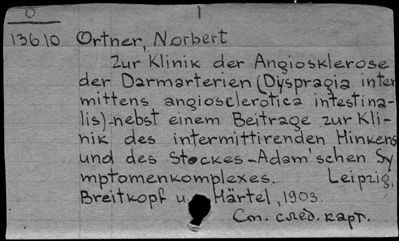 0
1
13610 Ortner, Norbert
Zur Klinik der Angiosklerose
der Darmarterien (Dyspragia inter
mittens angiosclerotica intestina-
lis) nebst einem Beitrage zur Kli-
nik des intermittirenden Hinkens
und des Stockes-Adam'schen Sy
mptomenkomplexes. Leipzig,
Breitkopf u. Härtel, 1903.
См. след. карт.